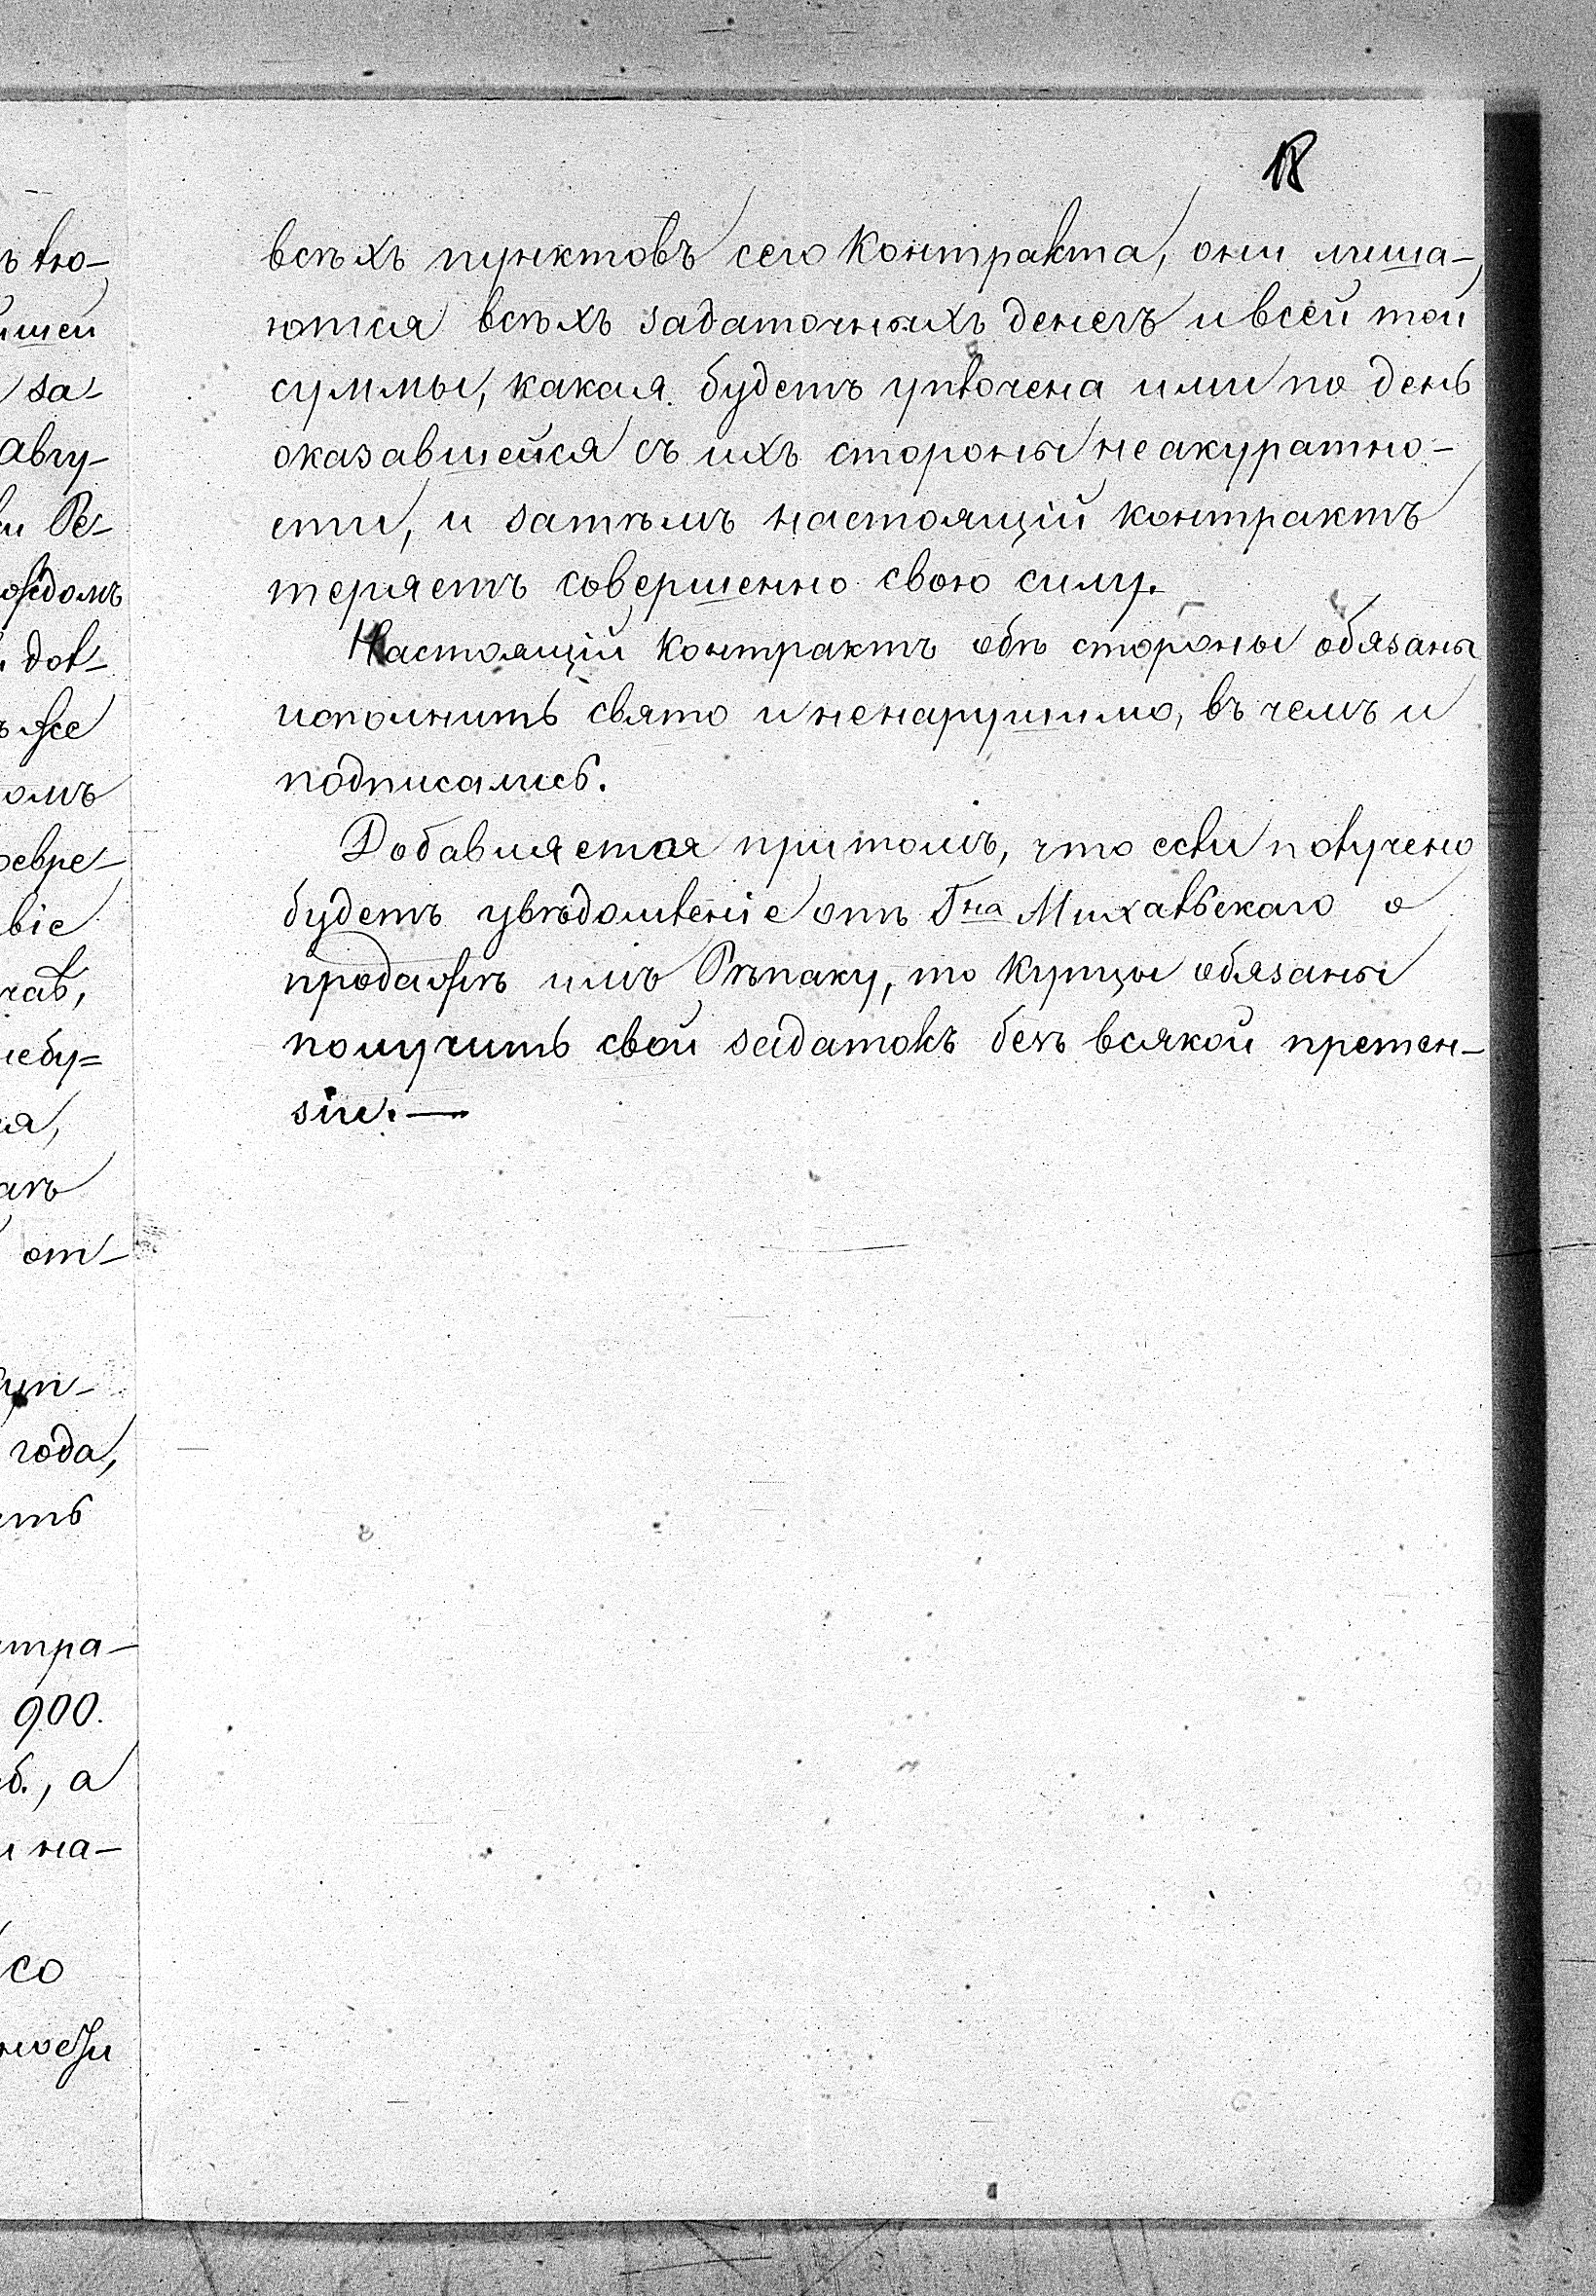 18
всѣхъ пунктовъ сего Контракта, они лиша-
ются всѣхъ задаточныхъ денегъ и всей той
суммы, какая будетъ уплочена ими по день
оказавшейся съ ихъ стороны неакуратно-
сти, и затѣмъ настоящій контрактъ
теряетъ совершенно свою силу.
Настоящій Контрактъ обѣ стороны обязаны
исполнить свято и ненарушимо, въ чемъ и
подписались.
Добавляется притомъ, что если получено
будетъ увѣдомленіе отъ Гна Михальскаго о
продажѣ имъ Рѣпаку, то Купцы обязаны
получить свой задатокъ безъ всякой претен-
зіи. —
ъ лю-
йшей
за-
Авгу-
Ре-
дол-
же
омъ
вре-
віе
небу=
от-
года,
тра-
900.
б., а
и на-
со